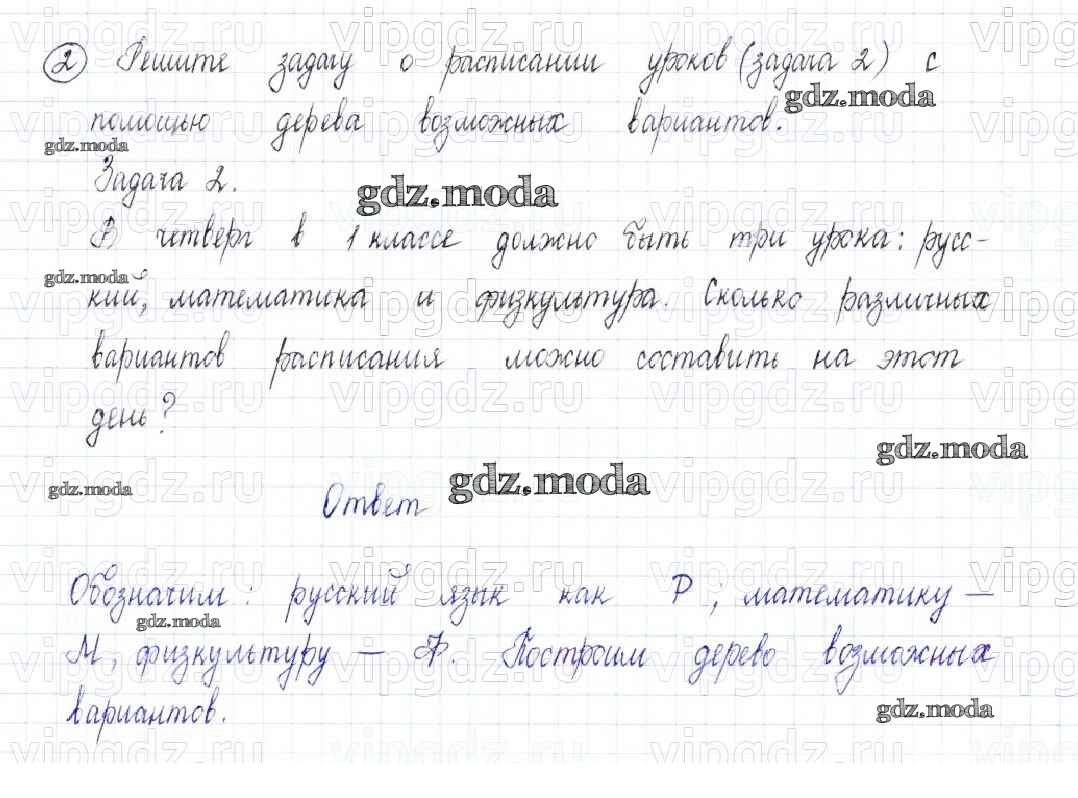 ② Решите задачу о расписании уроков (задача 2) с
помощью дерева возможных вариантов.
Задача 2.
В четверг в 1 классе должно быть три урока: русс-
кий, математика и физкультура. Сколько различных
вариантов расписания можно составить на этот
день?
Ответ
Обозначим: русский язык как Р; математику —
М, физкультуру — Ф. Построим дерево возможных
вариантов.
gdz.moda
vipgdz.ru